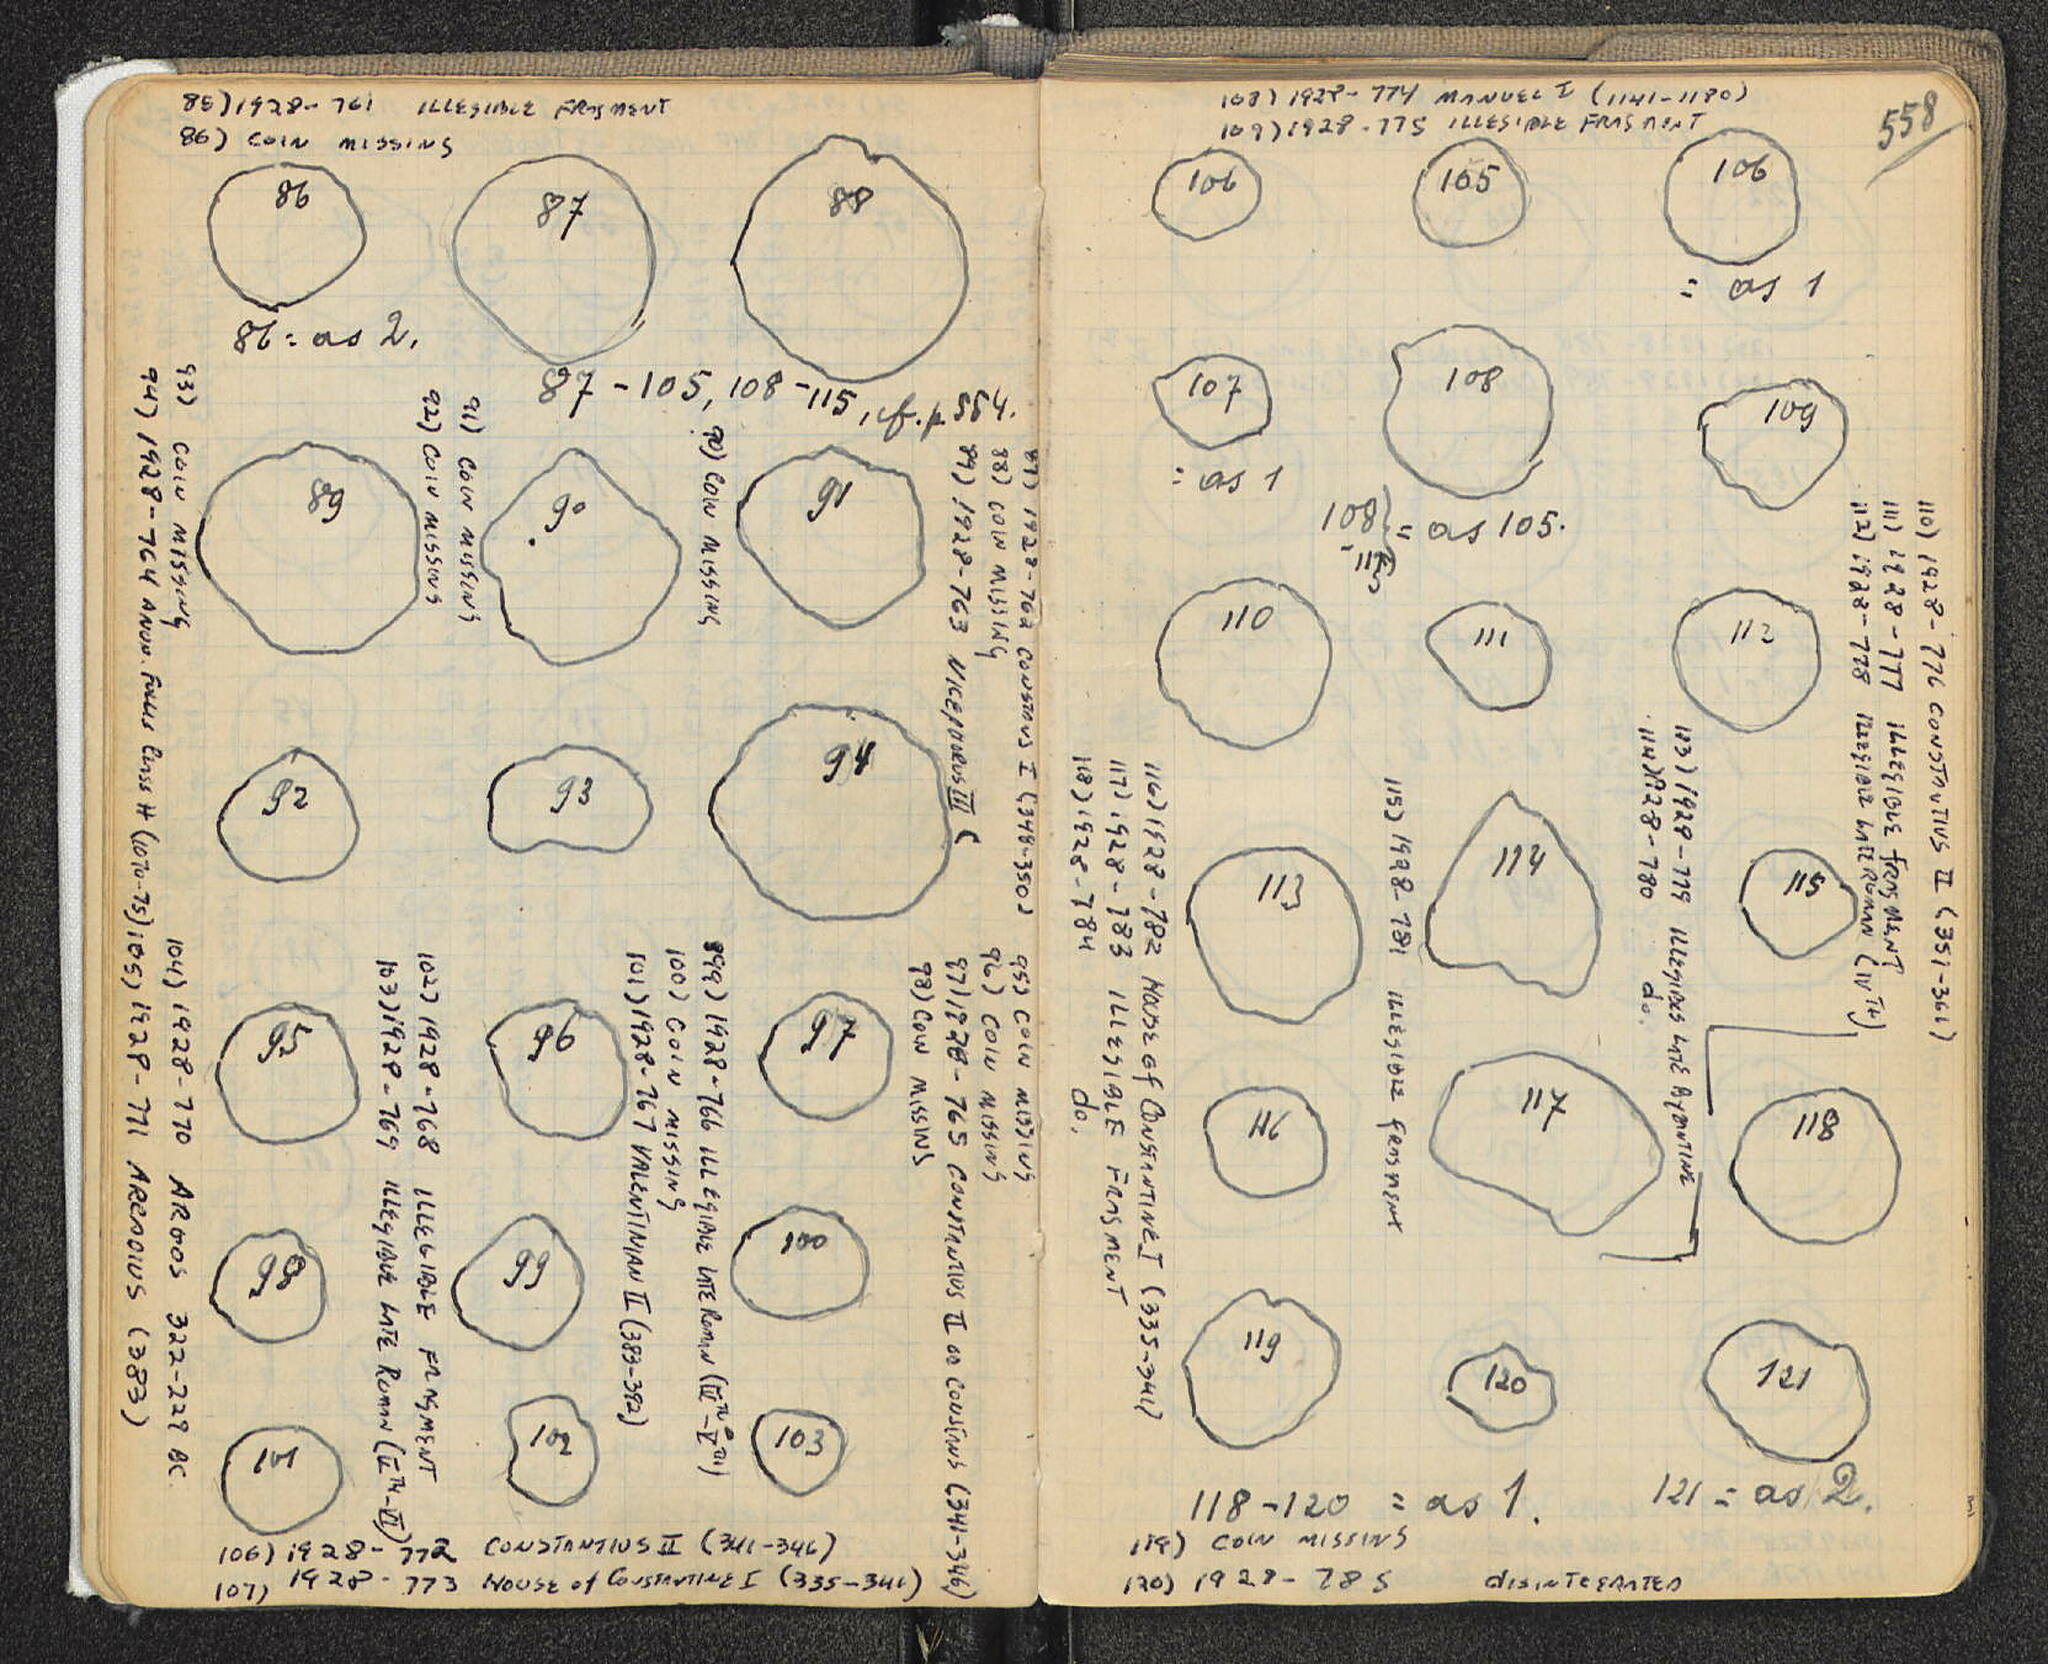 85) 1928-761 ILLEGIBLE FRAGMENT
86) COIN MISSING
86
87
88
86 = as 2.
87-105, 108-115, cf. p. 554.
93) COIN MISSING
94) 1928-764 ANON. FOLLIS CLASS H (1070-75)
91) COIN MISSING
92) COIN MISSING
90) COIN MISSING
87) 1928-762 CONSTANS I (348-350)
88) COIN MISSING
89) 1928-763 NICEPHORUS III (
89
90
91
92
93
94
104) 1928-770 ARGOS 322-229 BC
105) 1928-771 ARCADIUS (383)
102) 1928-768 ILLEGIBLE FRAGMENT
103) 1928-769 ILLEGIBLE LATE ROMAN (
99) 1928-766 ILLEGIBLE LATE ROMAN (IIITH-VTH)
100) COIN MISSING
101) 1928-767 VALENTINIAN II (383-392)
95) COIN MISSING
96) COIN MISSING
97) 1928-765 CONSTANTIUS II OR CONSTANS (341-346)
98) COIN MISSING
95
96
97
98
99
100
101
102
103
106) 1928-772 CONSTANTIUS II (341-346)
107) 1928-773 HOUSE of CONSTANTINE I (335-341)
108) 1928-774 MANUEL I (1141-1180)
109) 1928-775 ILLEGIBLE FRAGMENT
558
106
105
106
= as 1
107
108
109
= as 1
108
-115
= as 105.
110) 1928-776 CONSTANTIUS II (351-361)
111) 1928-777 ILLEGIBLE FRAGMENT
112) 1928-778 ILLEGIBLE LATE ROMAN (IVTH)
110
111
112
113) 1928-779 ILLEGIBLE LATE BYZANTINE
114) 1928-780 do.
115) 1928-781 ILLEGIBLE FRAGMENT
116) 1928-782 HOUSE of CONSTANTINE I (335-341)
117) 1928-783 ILLEGIBLE FRAGMENT
118) 1928-784 do.
113
114
115
116
117
118
119
120
121
118-120 = as 1.
121 = as 2.
119) COIN MISSING
120) 1928-785 DISINTEGRATED